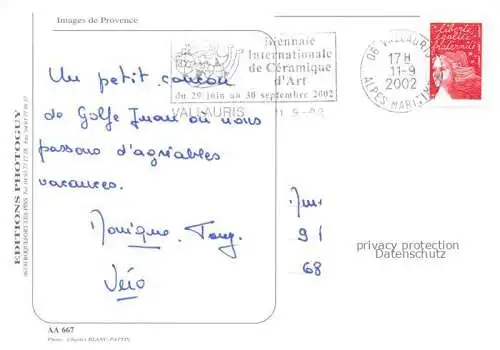 Images de Provence
Biennale
Internationale
de Céramique
d'Art
du 29 juin au 30 septembre 2002
VALLAURIS 11 9-02
06 VALLAURIS
17H
11-9
2002
ALPES MARITIMES
liberté
égalité
fraternité
Un petit coucou
de Golfe Juan où nous
passons d'agréables
vacances.
Monique. Tony.
Véro
91
68
privacy protection
Datenschutz
EDITIONS PHOTOGUY
AA 667
Photo : Charles BLANC-PATTIN